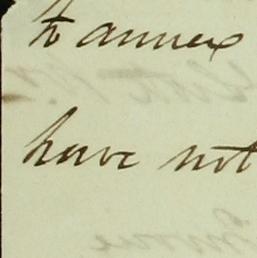 to annex
have not